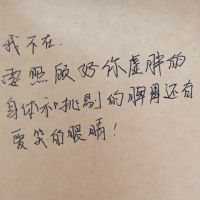 我不在.
要照顾好你虚胖的
身体和「挑剔」的脾胃还有
爱笑的眼睛!